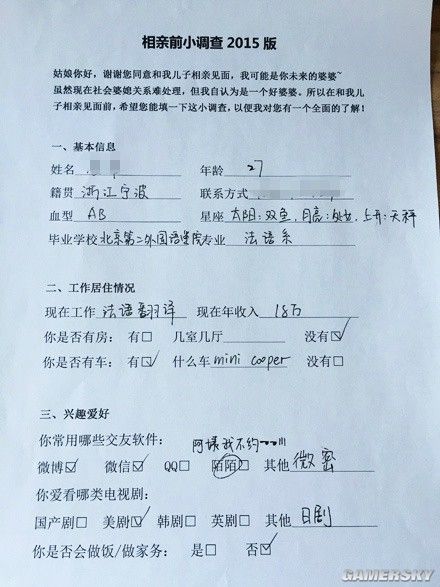 相亲前小调查 2015 版
姑娘你好，谢谢您同意和我儿子相亲见面，我可能是你未来的婆婆~
虽然现在社会婆媳关系难处理，但我自认为是一个好婆婆。所以在和我儿
子相亲见面前，希望您能填一下这小调查，以便我对您有一个全面的了解！
一、基本信息
姓名 年龄 27
籍贯 浙江宁波 联系方式
血型 AB 星座 太阳：双鱼，月亮：处女，上升：天秤
毕业学校 北京第二外国语学院 专业 法语系
二、工作居住情况
现在工作 法语翻译 现在年收入 18万
你是否有房：有□ 几室几厅 没有☑
你是否有车：有☑ 什么车 mini cooper 没有□
三、兴趣爱好
你常用哪些交友软件： 阿姨我不约……!!!
微博☑ 微信☑ QQ□ 陌陌□ 其他 微密
你爱看哪类电视剧：
国产剧□ 美剧☑ 韩剧□ 英剧□ 其他 日剧
你是否会做饭/做家务： 是□ 否☑
GAMERSKY